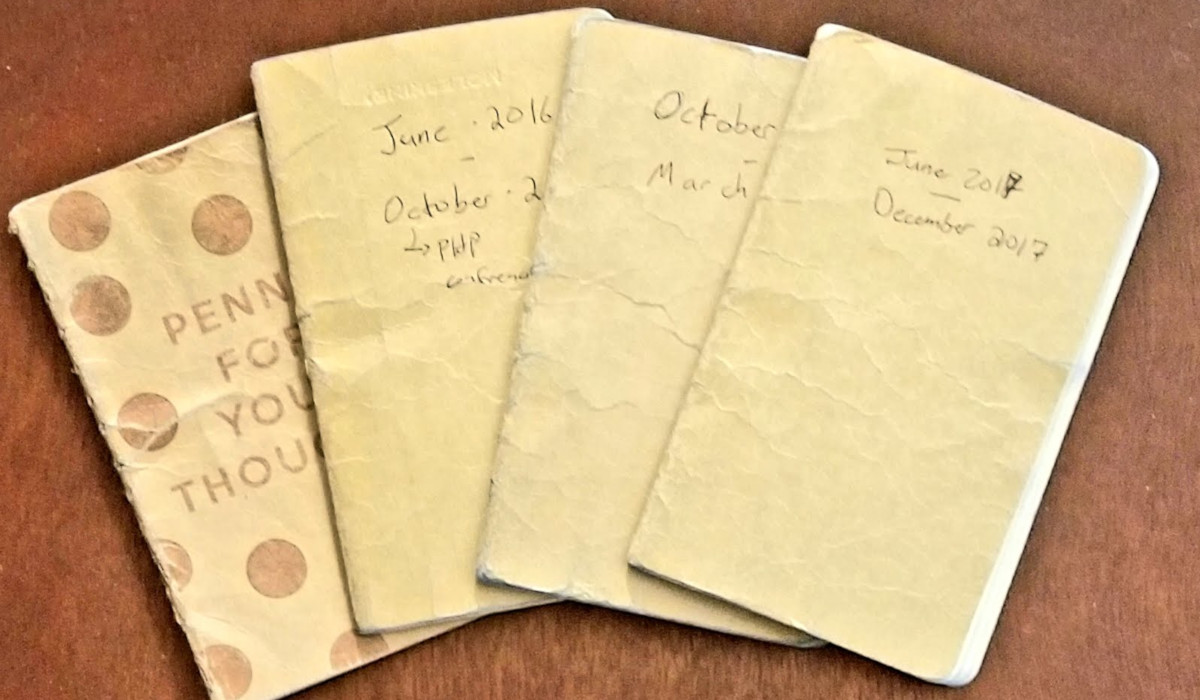 PENN
FOR
YOU
THOUG
PRINCETON
June · 2016
-
October · 2
↳ PHP
October
-
March
June 2017
—
December 2017